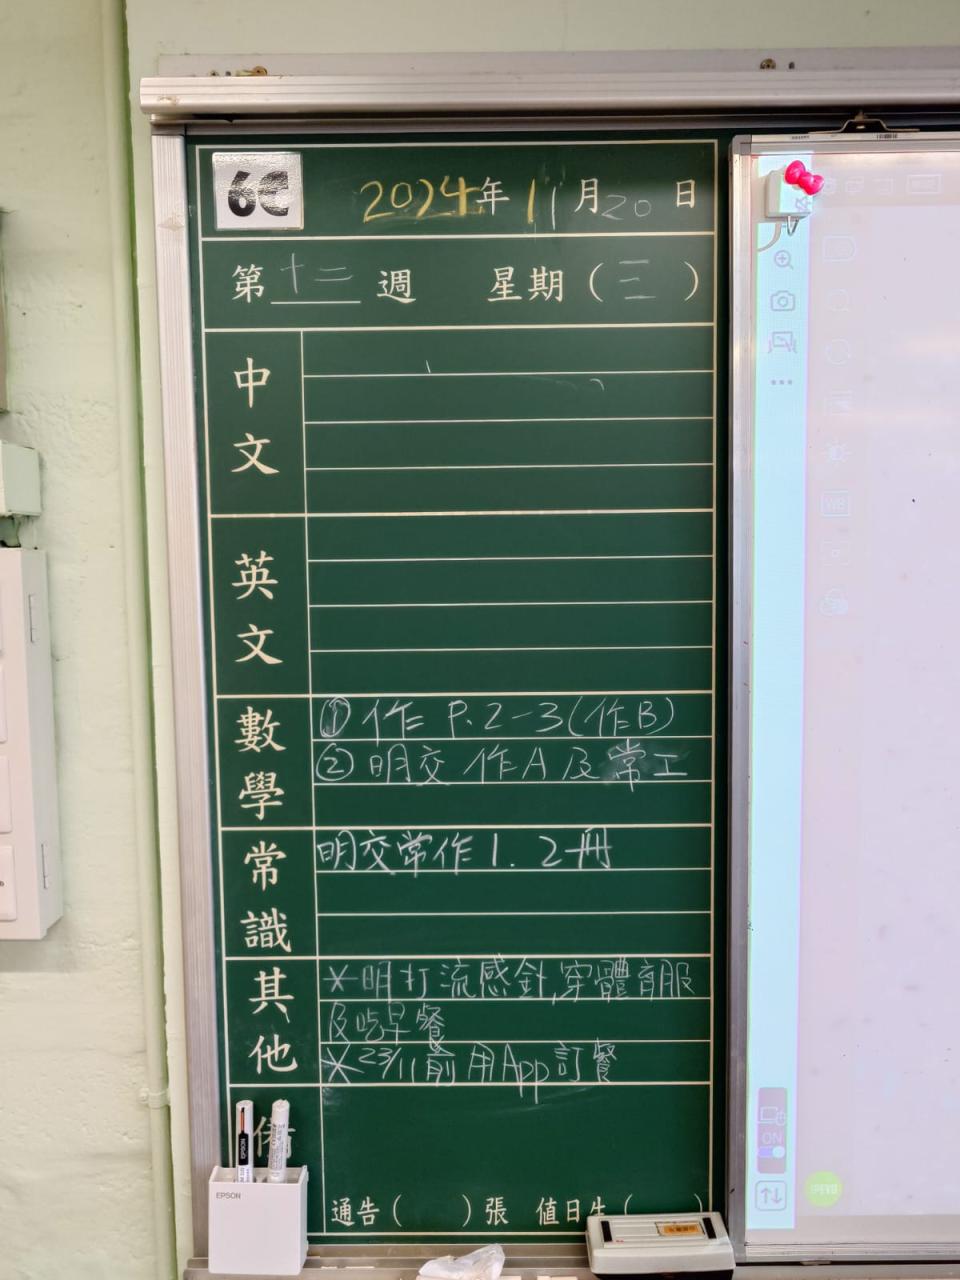 6C
2024年 11月20日
第十二週 星期(三)
中文
英文
數學
① 作 P.2-3(作B)
② 明交 作A 及 常工
常識
明交常作1. 2冊
其他
*明打流感針,穿體育服
及吃早餐
*23/11前用App訂餐
備
通告( )張 值日生(
EPSON
WB
ON